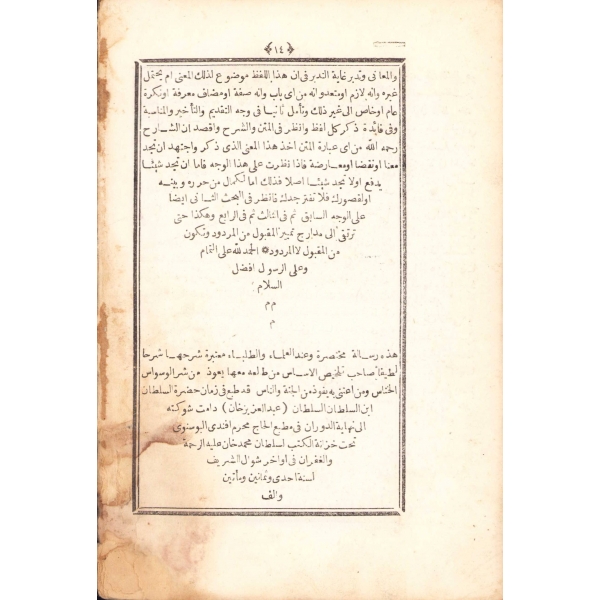 ﴿١٤﴾
والمعانى وتدبر غاية التدبر فى ان هذا اللفظ موضوع لذلك المعنى ام يحتمل
غيره وانه لازم او متعد وانه من اى باب وانه صفة او مضاف معرفة او نكرة
عام او خاص الى غير ذلك وتأمل ثانيا فى وجه التقديم والتأخير والمناسبة
وفى فائدة ذكر كل لفظ وانظر فى المتن والشرح واقصد ان الشارح
رحمه الله من اى عبارة المتن اخذ هذا المعنى الذى ذكر واجتهد ان تجد
منعا او نقضا او معارضة فاذا نظرت على هذا الوجه فاما ان تجد شيئا
يدفع اولا تجد شيئا اصلا فذلك اما لكمال من حرره وبينه
او لقصورك فلا تغتر بجدك فانظر فى البحث الثانى ايضا
على الوجه السابق ثم فى الثالث ثم فى الرابع وهكذا حتى
ترتقى الى مدارج تمييز المقبول من المردود وتكون
من المقبول لا المردود * الحمد لله على التمام
وعلى الرسول افضل
السلام
م م
م
هذه رسالة مختصرة وعند العلماء والطلباء معتبرة شرحها شرحا
لطيفا صاحب تلخيص الاساس من طالعه معها يعوذ من شر الوسواس
الخناس ومن اعتنى به يفوذ من الجنة والناس قد طبع فى زمان حضرة السلطان
ابن السلطان السلطان (عبد العزيز خان) دامت شوكته
الى نهاية الدوران فى مطبع الحاج محرم افندى البوسنوى
تحت خزينة الكتب لسلطان محمد خان عليه الرحمة
والغفران فى اواخر شوال الشريف
لسنة احدى وثمانين ومأتين
والف